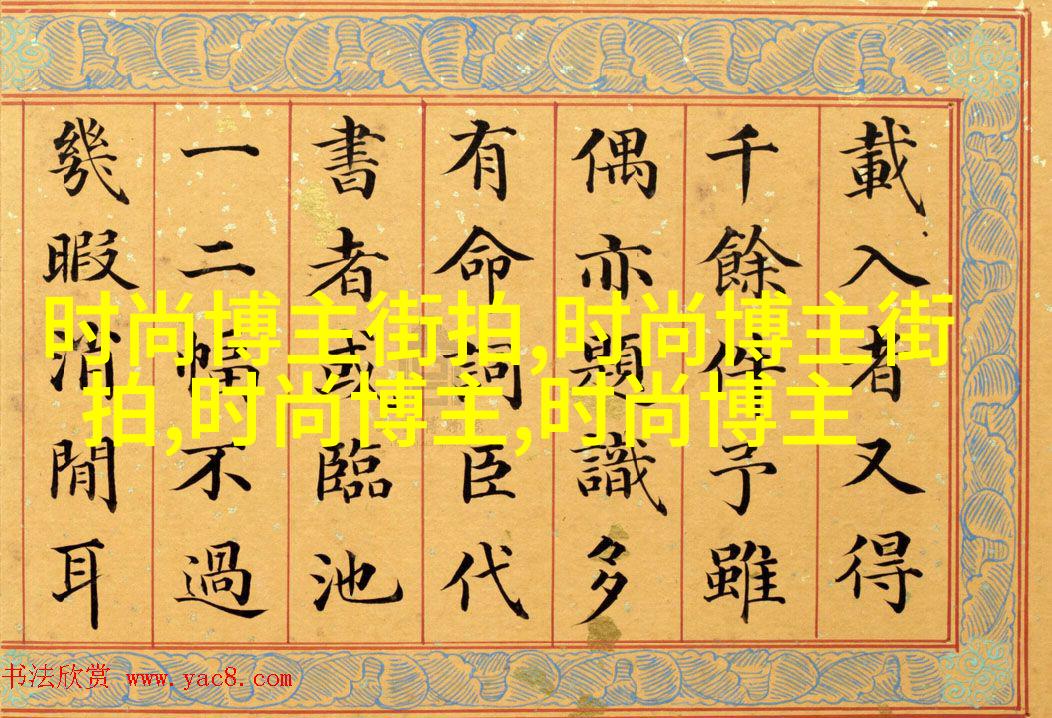 載入者又得
千餘件予雖
偶亦題識多
有命詞臣代
書者或臨池
一二幅不過
幾暇消閒耳
时尚博主街拍,时尚博主街
拍,时尚博主,时尚博主
书法欣赏 www.yac8.com